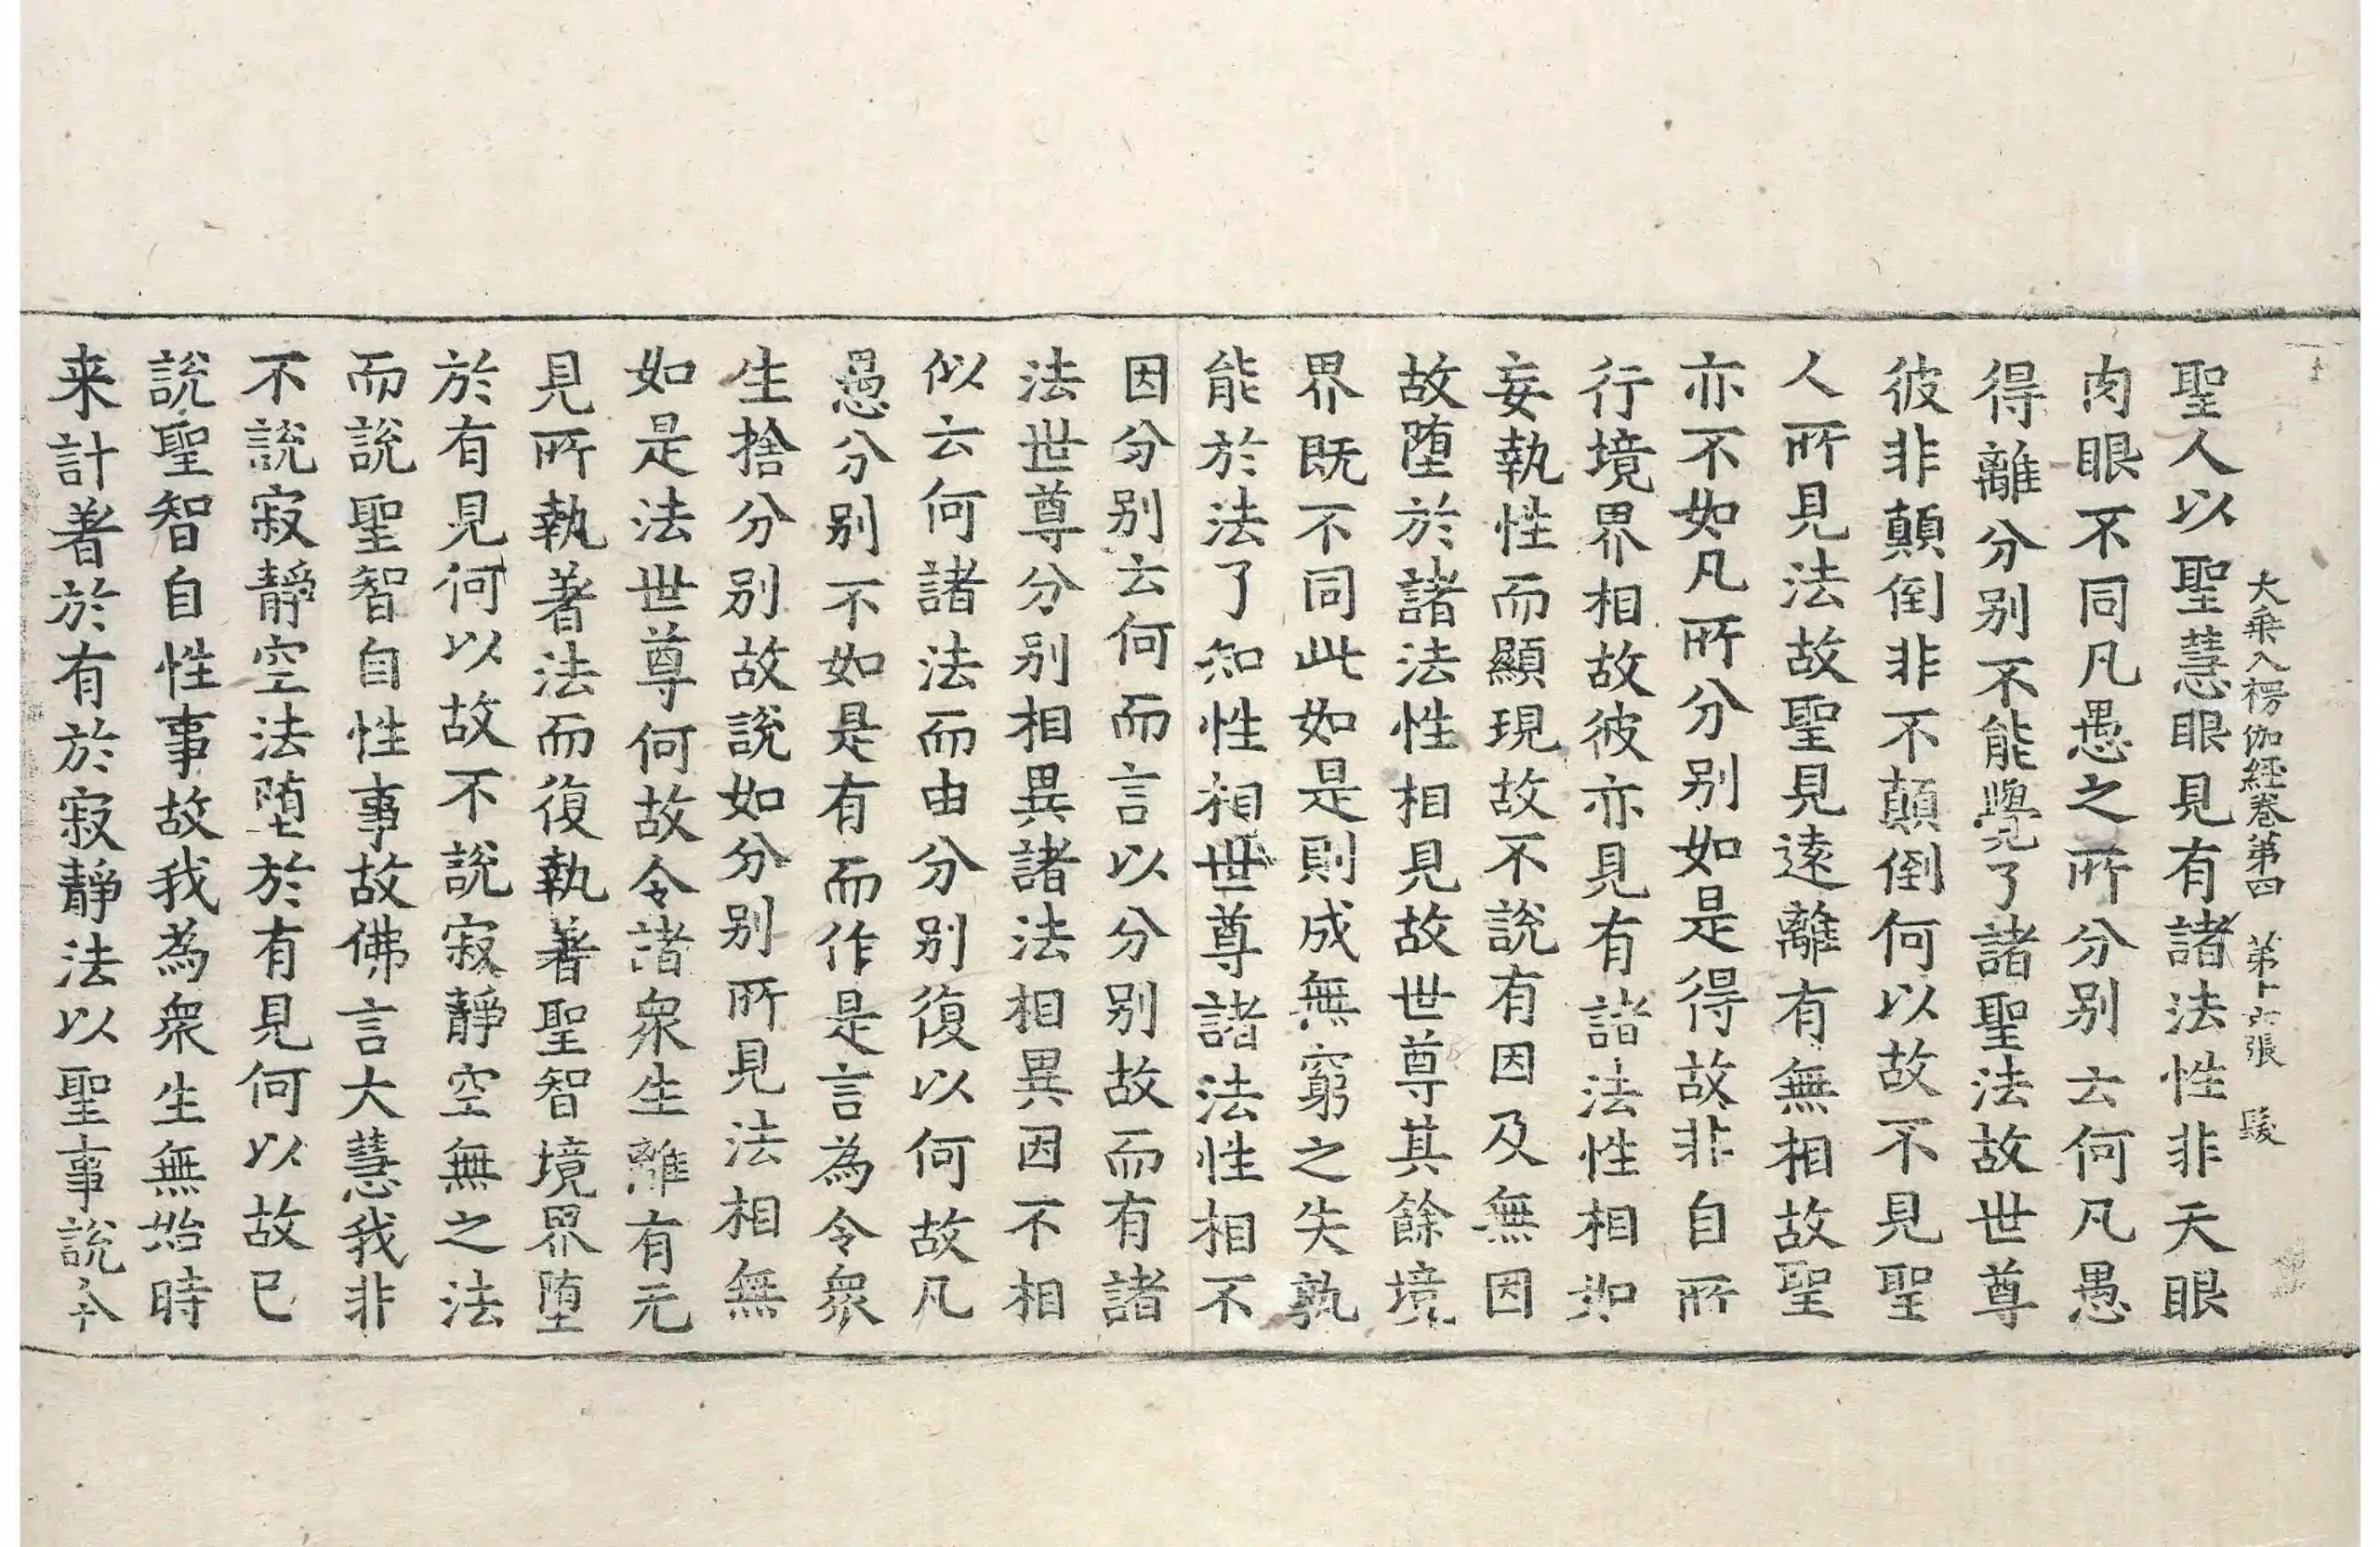 大乘入楞伽經卷第四 第十六張 髮
聖人以聖慧眼見有諸法性非天眼
肉眼不同凡愚之所分別云何凡愚
得離分別不能覺了諸聖法故世尊
彼非顛倒非不顛倒何以故不見聖
人所見法故聖見遠離有無相故聖
亦不如凡所分別如是得故非自所
行境界相故彼亦見有諸法性相如
妄執性而顯現故不說有因及無因
故墮於諸法性相見故世尊其餘境
界既不同此如是則成無窮之失孰
能於法了知性相世尊諸法性相不
因分別云何而言以分別故而有諸
法世尊分別相異諸法相異因不相
似云何諸法而由分別復以何故凡
愚分別不如是有而作是言為令衆
生捨分別故說如分別所見法相無
如是法世尊何故令諸衆生離有无
見所執著法而復執著聖智境界墮
於有見何以故不說寂靜空無之法
而說聖智自性事故佛言大慧我非
不說寂靜空法墮於有見何以故已
說聖智自性事故我為衆生無始時
来計著於有於寂靜法以聖事說令